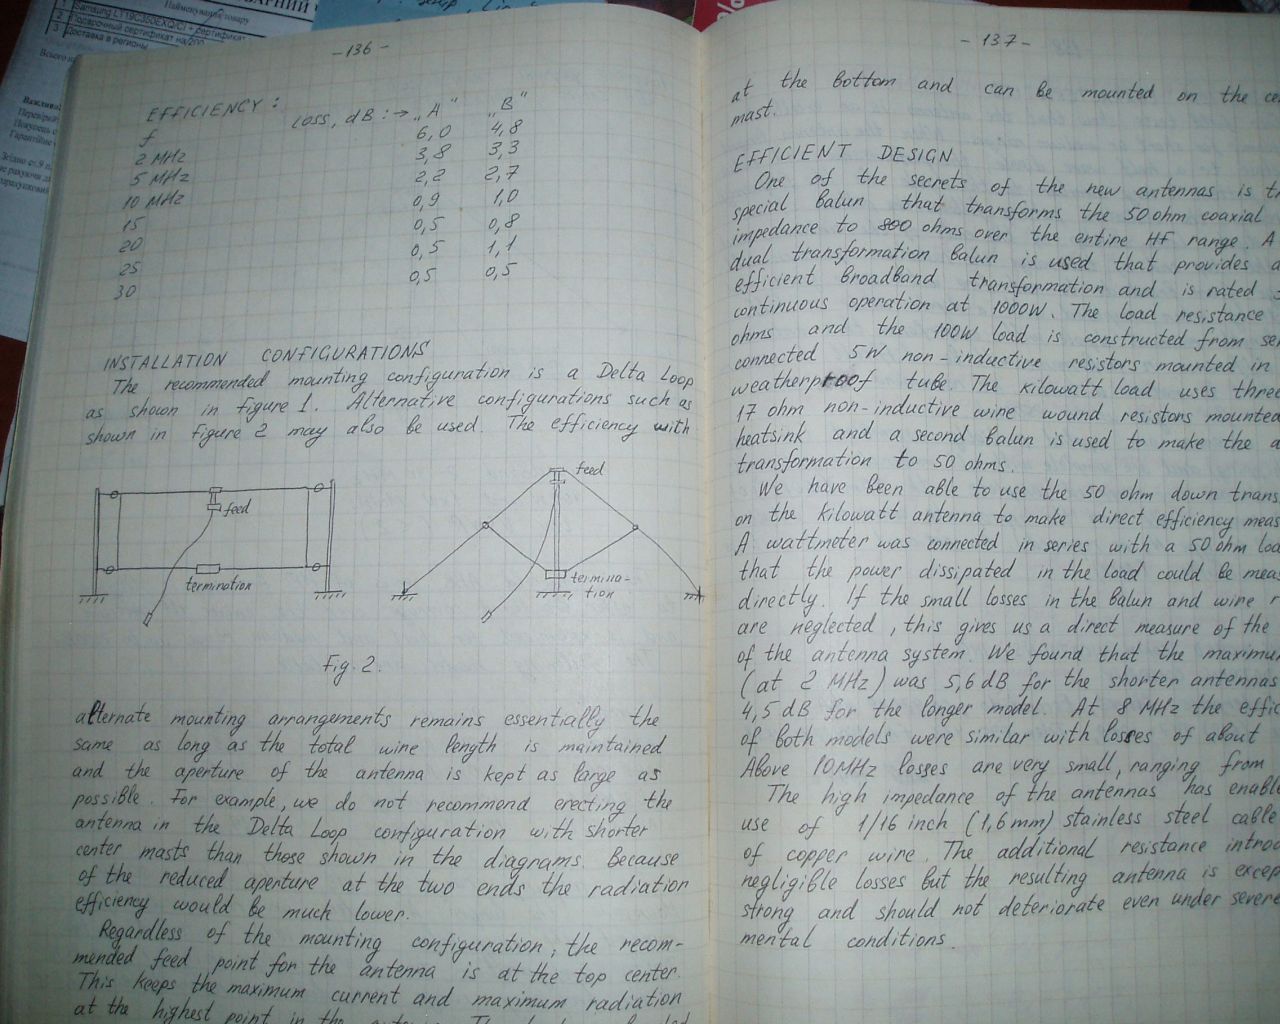 Найменування товару
1 Samsung LT19C350EXQ/CI + сертификат
2 Подарочный сертификат на 200
3 Доставка в регионы
Всього
Важлива
-136-
EFFICIENCY:
f Loss, dB: → „A" „B"
2 MHz 6,0 4,8
5 MHz 3,8 3,3
10 MHz 2,2 2,7
15 0,9 1,0
20 0,5 0,8
25 0,5 1,1
30 0,5 0,5
INSTALLATION CONFIGURATIONS
The recommended mounting configuration is a Delta Loop
as shown in figure 1. Alternative configurations such as
shown in figure 2 may also be used. The efficiency with
feed
termination
feed
termina-
tion
Fig. 2.
alternate mounting arrangements remains essentially the
same as long as the total wire length is maintained
and the aperture of the antenna is kept as large as
possible. For example, we do not recommend erecting the
antenna in the Delta Loop configuration with shorter
center masts than those shown in the diagrams. Because
of the reduced aperture at the two ends the radiation
efficiency would be much lower.
Regardless of the mounting configuration, the recom-
mended feed point for the antenna is at the top center.
This keeps the maximum current and maximum radiation
at the highest point in the
-137-
at the bottom and can be mounted on the ce
mast.
EFFICIENT DESIGN
One of the secrets of the new antennas is th
special balun that transforms the 50 ohm coaxial
impedance to 800 ohms over the entire HF range. A
dual transformation balun is used that provides a
efficient broadband transformation and is rated
continuous operation at 1000W. The load resistance
ohms and the 100W load is constructed from se
connected 5W non-inductive resistors mounted in
weatherproof tube. The kilowatt load uses three
17 ohm non-inductive wire wound resistors mounted
heatsink and a second balun is used to make the a
transformation to 50 ohms.
We have been able to use the 50 ohm down trans
on the kilowatt antenna to make direct efficiency meas
A wattmeter was connected in series with a 50 ohm loa
that the power dissipated in the load could be meas
directly. If the small losses in the balun and wire r
are neglected, this gives us a direct measure of the
of the antenna system. We found that the maximum
(at 2 MHz) was 5,6 dB for the shorter antennas
4,5 dB for the longer model. At 8 MHz the effic
of both models were similar with losses of about
Above 10MHz losses are very small, ranging from
The high impedance of the antennas has enable
use of 1/16 inch (1,6 mm) stainless steel cable
of copper wire. The additional resistance introd
negligible losses but the resulting antenna is excep
strong and should not deteriorate even under severe
mental conditions.